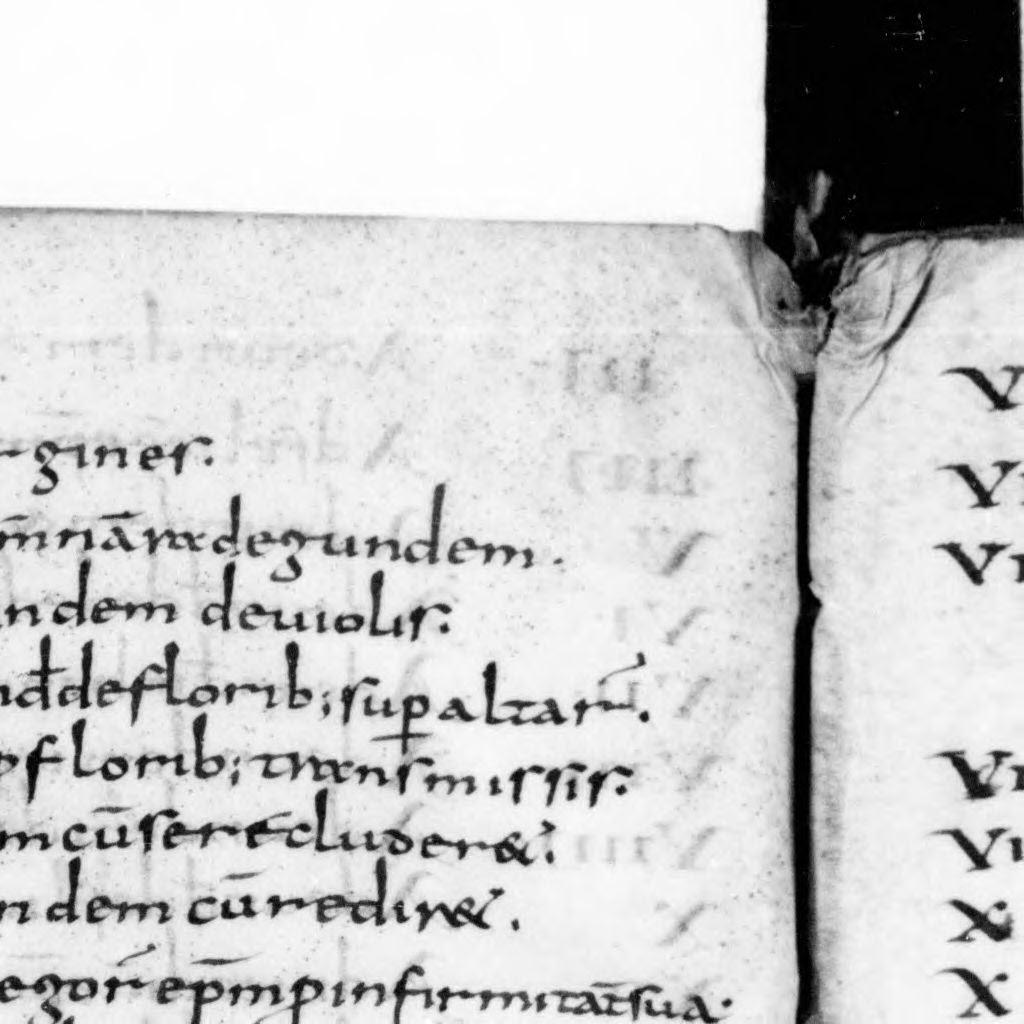 gines.
m̄ riā radegundem.
ndem deuiolis.
dđ deflorib; sup altar̄.
p florib; transmissis.
m cū se recluderet.
n dem cū rediret.
egor̄ ep̄m p infirmitat̄ sua.
V
VI
VI
VI
VI
X
X